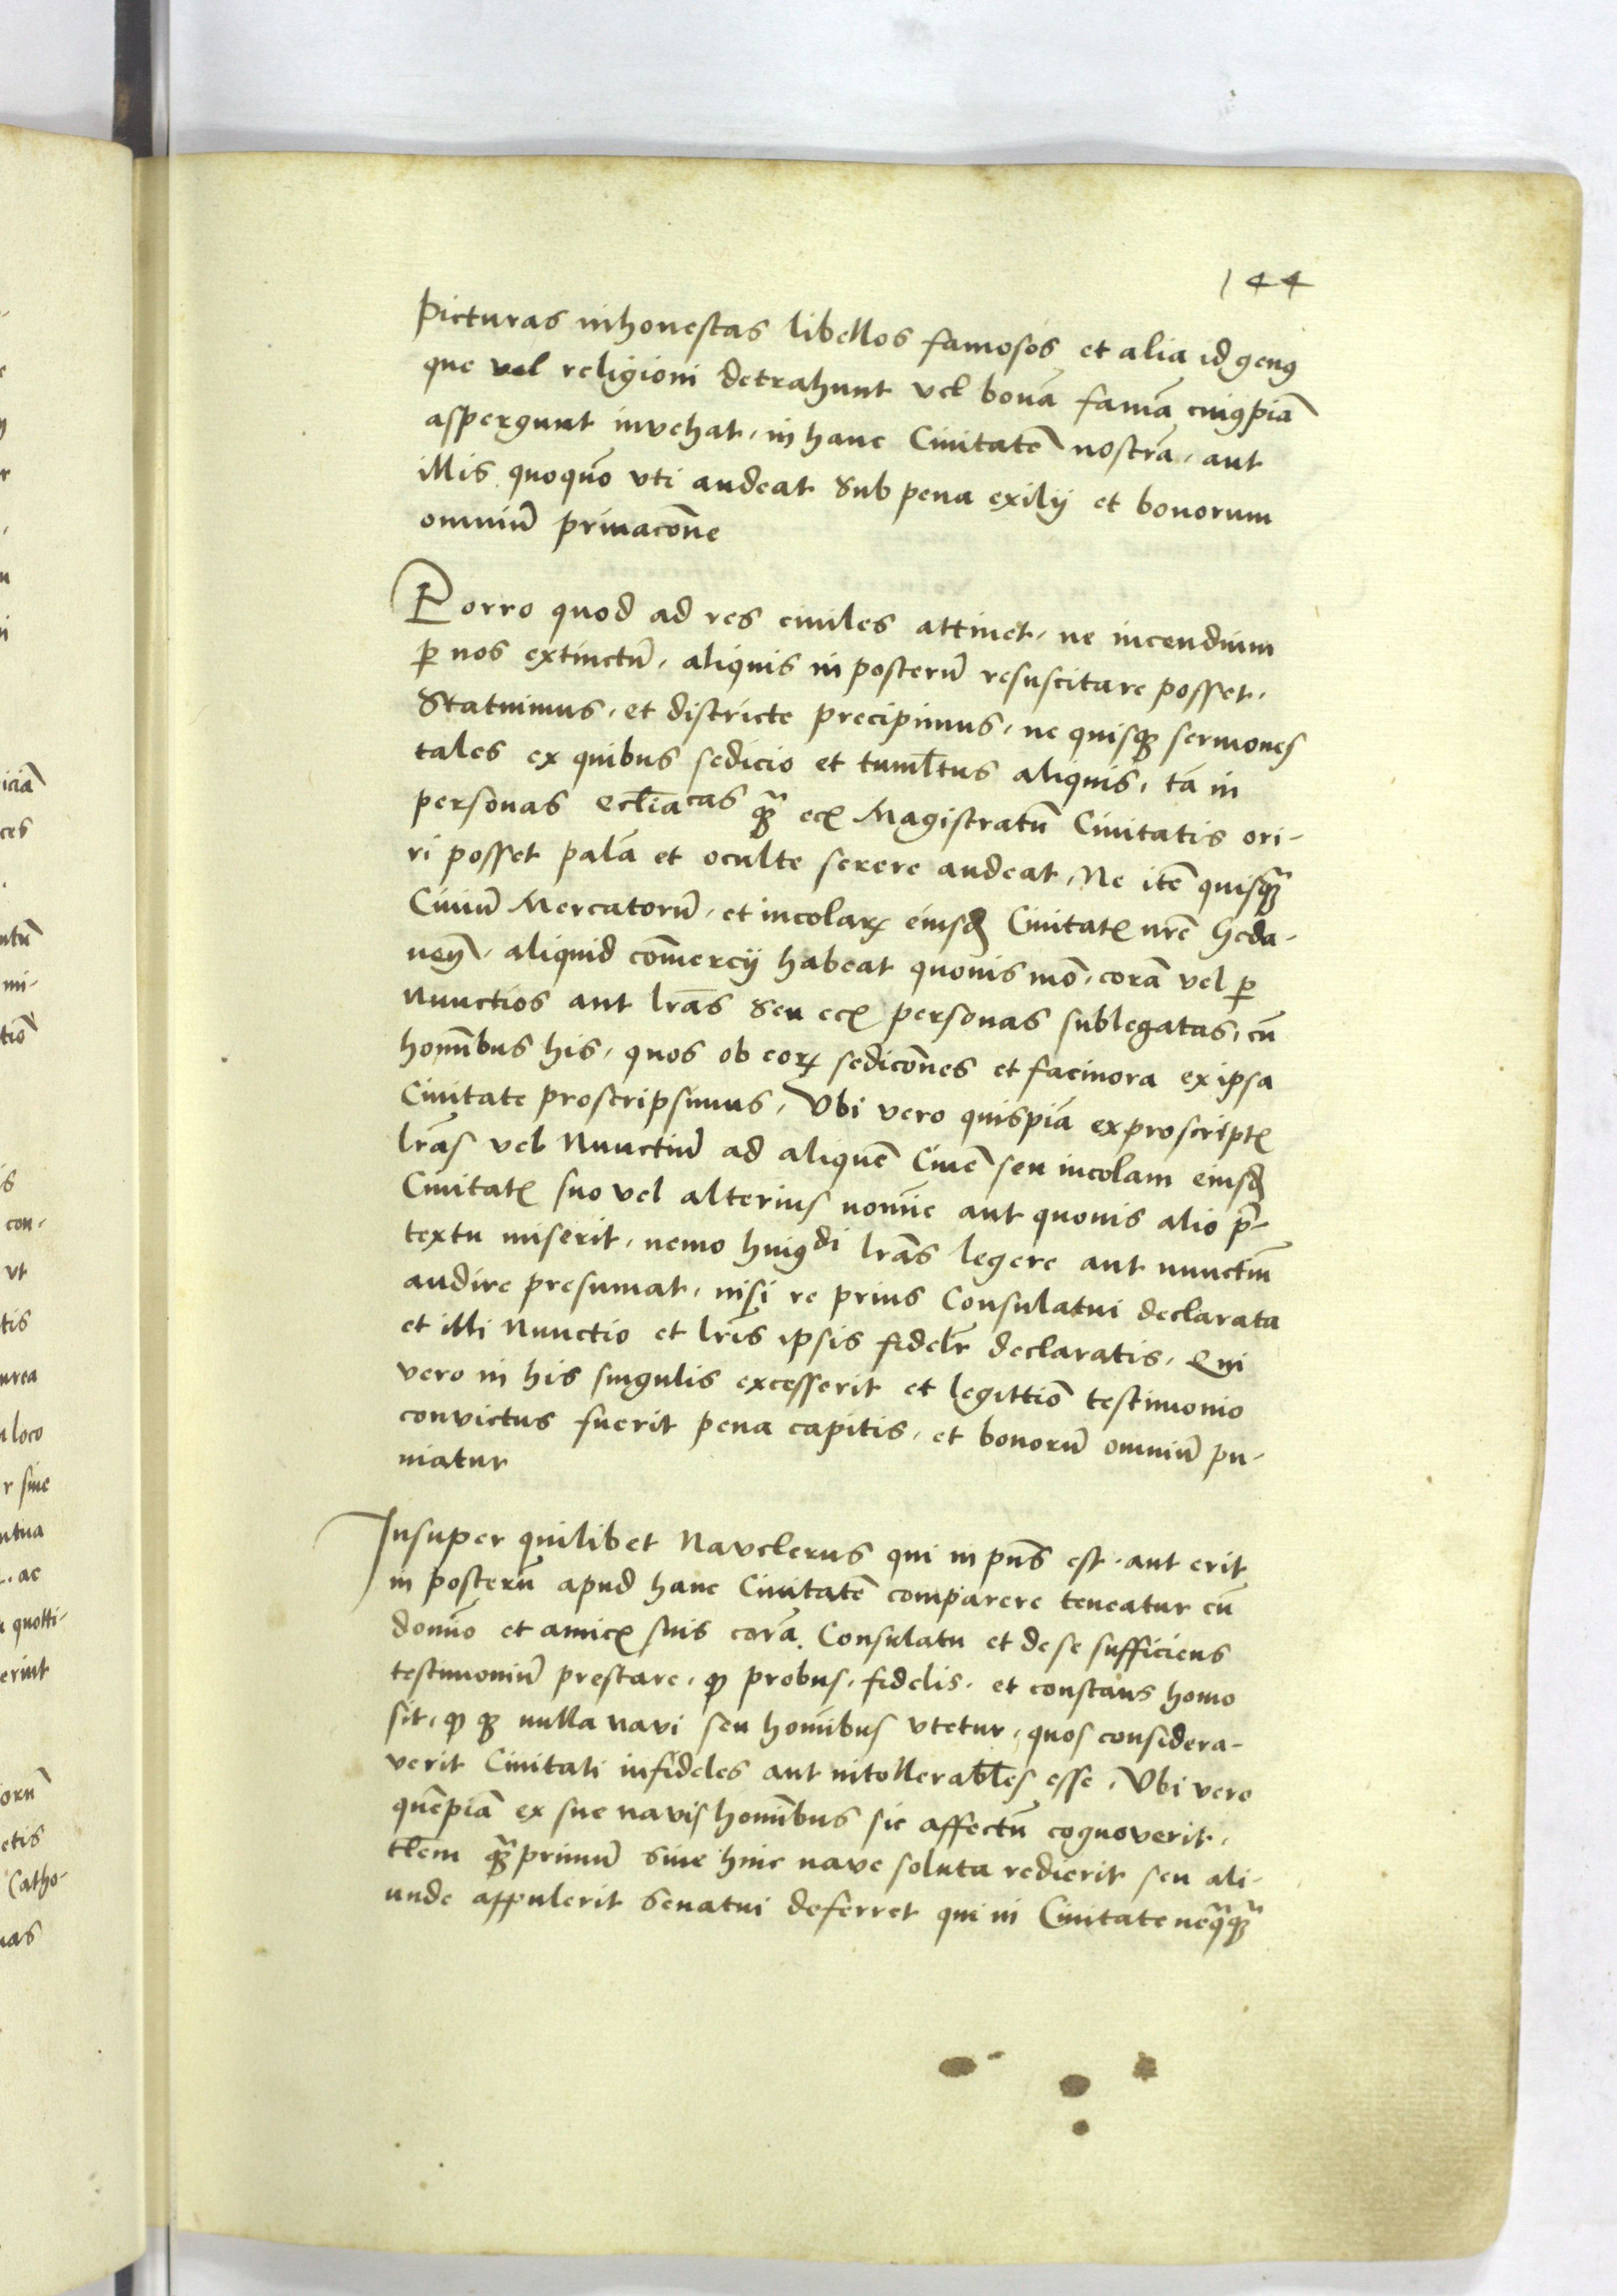 144
Picturas inhonestas libellos famosos et alia id genꝰ
que vel religioni detrahunt vel bonā famā cuiꝰpiā
aspergunt invehat, in hanc Civitatē nostrā, aut
illis quoquō vti audeat sub pena exilij et bonorum
omniū privacōne
Porro quod ad res civiles attinet, ne incendium
ꝑ nos extinctū, aliquis in posterū resuscitare posset,
Statuimus, et districte precipimus, ne quisqꝫ sermones
tales ex quibus sedicio et tumľtus aliquis, tā in
personas eccľiacas qꝫ̄ ecꝭ Magistratū Civitatis ori-
ri posset palā et oculte serere audeat, Ne itē quisqꝫ̄
Civiū Mercatorū, et incolarꝝ eiusꝺ Civitatꝭ nrē Geda-
neñ, aliquid cōmercij habeat quovis mō, corā vel ꝑ
Nunctios aut lrās seu ecꝭ personas sublegatas, cū
homībus his, quos ob eorꝝ sedicōnes et facinora ex ipsa
Civitate proscripsimus, Vbi vero quispiā ex proscriptꝭ
lrās vel Nunctiū ad aliquē Civē seu incolam eiusꝺ
Civitatꝭ suo vel alterius nomīe aut quovis alio p̄-
textu miserit, nemo huiꝰdi lrās legere aut nunctiū
audire presumat, nisi re prius Consulatui declarata
et illi Nunctio et lrīs ipsis fidelr̄ declaratis, Qui
vero in his singulis excesserit et legittiō testimonio
convictus fuerit pena capitis, et bonorū omniū pu-
niatur
Insuper quilibet Nauclerus qui in pn̄s est, aut erit
in posterū apud hanc Civitatē comparere teneatur cū
domīo et amicꝭ suis corā Consulatu et de se sufficiens
testimoniū prestare, ꝙ probus, fidelis, et constans homo
sit, ꝙ qꝫ nulla navi seu homībus vtetur, quos considera-
verit Civitati infideles aut intollerabľes esse, Vbi vero
quēpiā ex sue navis homībus sic affectū cognoverit,
tľem qꝫ̄primū sive hinc nave soluta redierit seu ali-
unde appulerit Senatui deferret qui in Civitate neq̄qꝫ̄